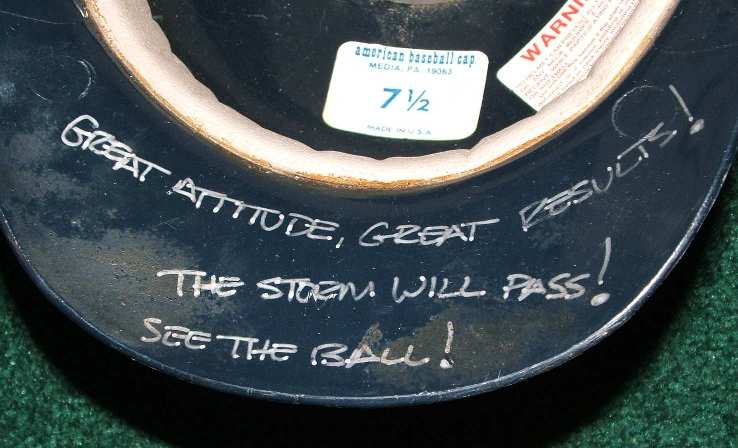 american baseball cap
MEDIA, PA. 19063
7 1/2
MADE IN U.S.A
WARNING
GREAT ATTITUDE, GREAT RESULTS!
THE STORM WILL PASS!
SEE THE BALL!